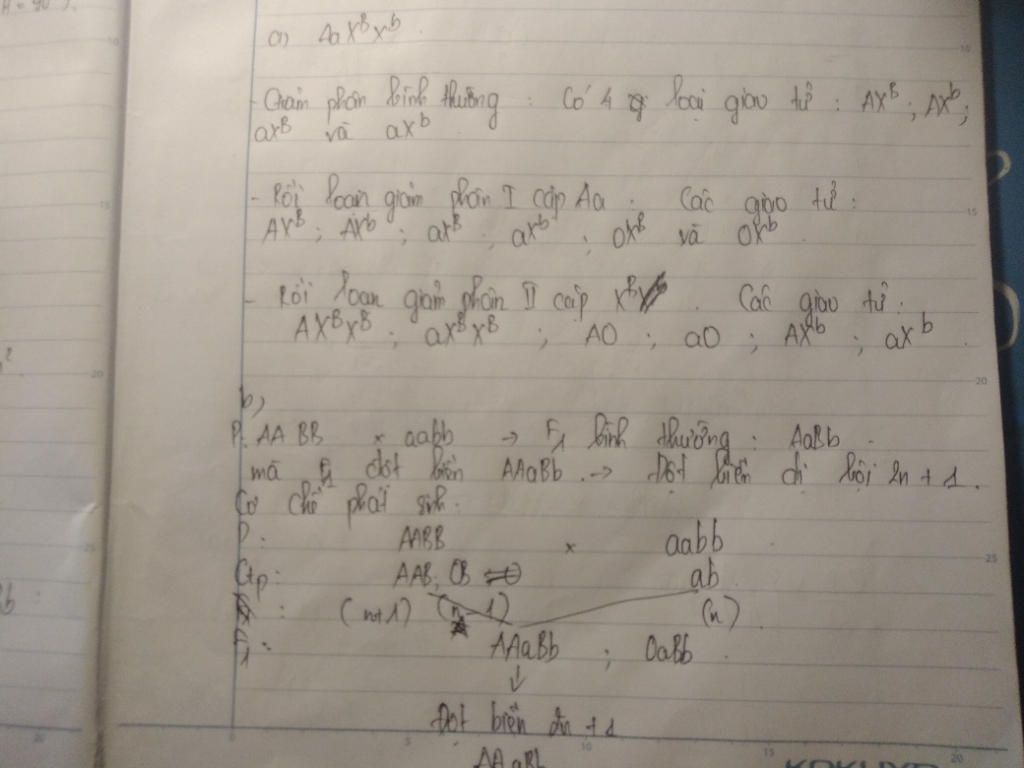 a) AaXᴮXᵇ.
- Giảm phân bình thường : Có 4 loại giao tử : AXᴮ ; AXᵇ ;
aXᴮ và aXᵇ
- Rối loạn giảm phân I cặp Aa . Các giao tử :
AXᴮ ; AXᵇ ; aXᴮ ; aXᵇ ; OXᴮ và OXᵇ
- Rối loạn giảm phân II cặp XᴮX . Các giao tử :
AXᴮXᴮ ; aXᴮXᴮ ; AO ; aO ; AXᵇ ; aXᵇ .
b)
P. AA BB × aabb → F₁ bình thường : AaBb .
mà F₁ đột biến AAaBb . → Đột biến dị bội 2n + 1 .
Cơ chế phát sinh :
P : AABB × aabb
Gtp : AAB ; OB ab
: (n+1) (n-1) (n)
F₁ : AAaBb ; OaBb .
↓
Đột biến 2n + 1
AAaBb
10
15
15
20
20
25
25
0
5
10
15
20